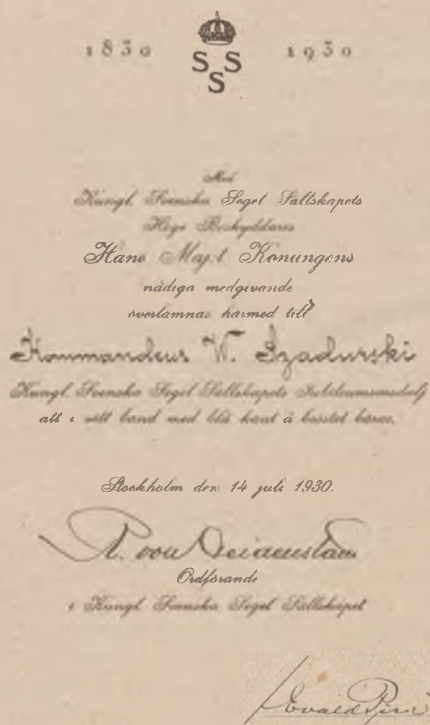 1830 1930
S S S
S
Med
Kungl. Svenska Segel Sällskapets
Höge Beskyddares
Hans Maj:t Konungens
nådiga medgivande
överlämnas härmed till
Kommandeur W. Szadurski
Kungl. Svenska Segel Sällskapets Jubileumsmedalj
att i vitt band med blå kant å bröstet bäras.
Stockholm den 14 juli 1930.
von
Ordförande
i Kungl. Svenska Segel Sällskapet
Evald